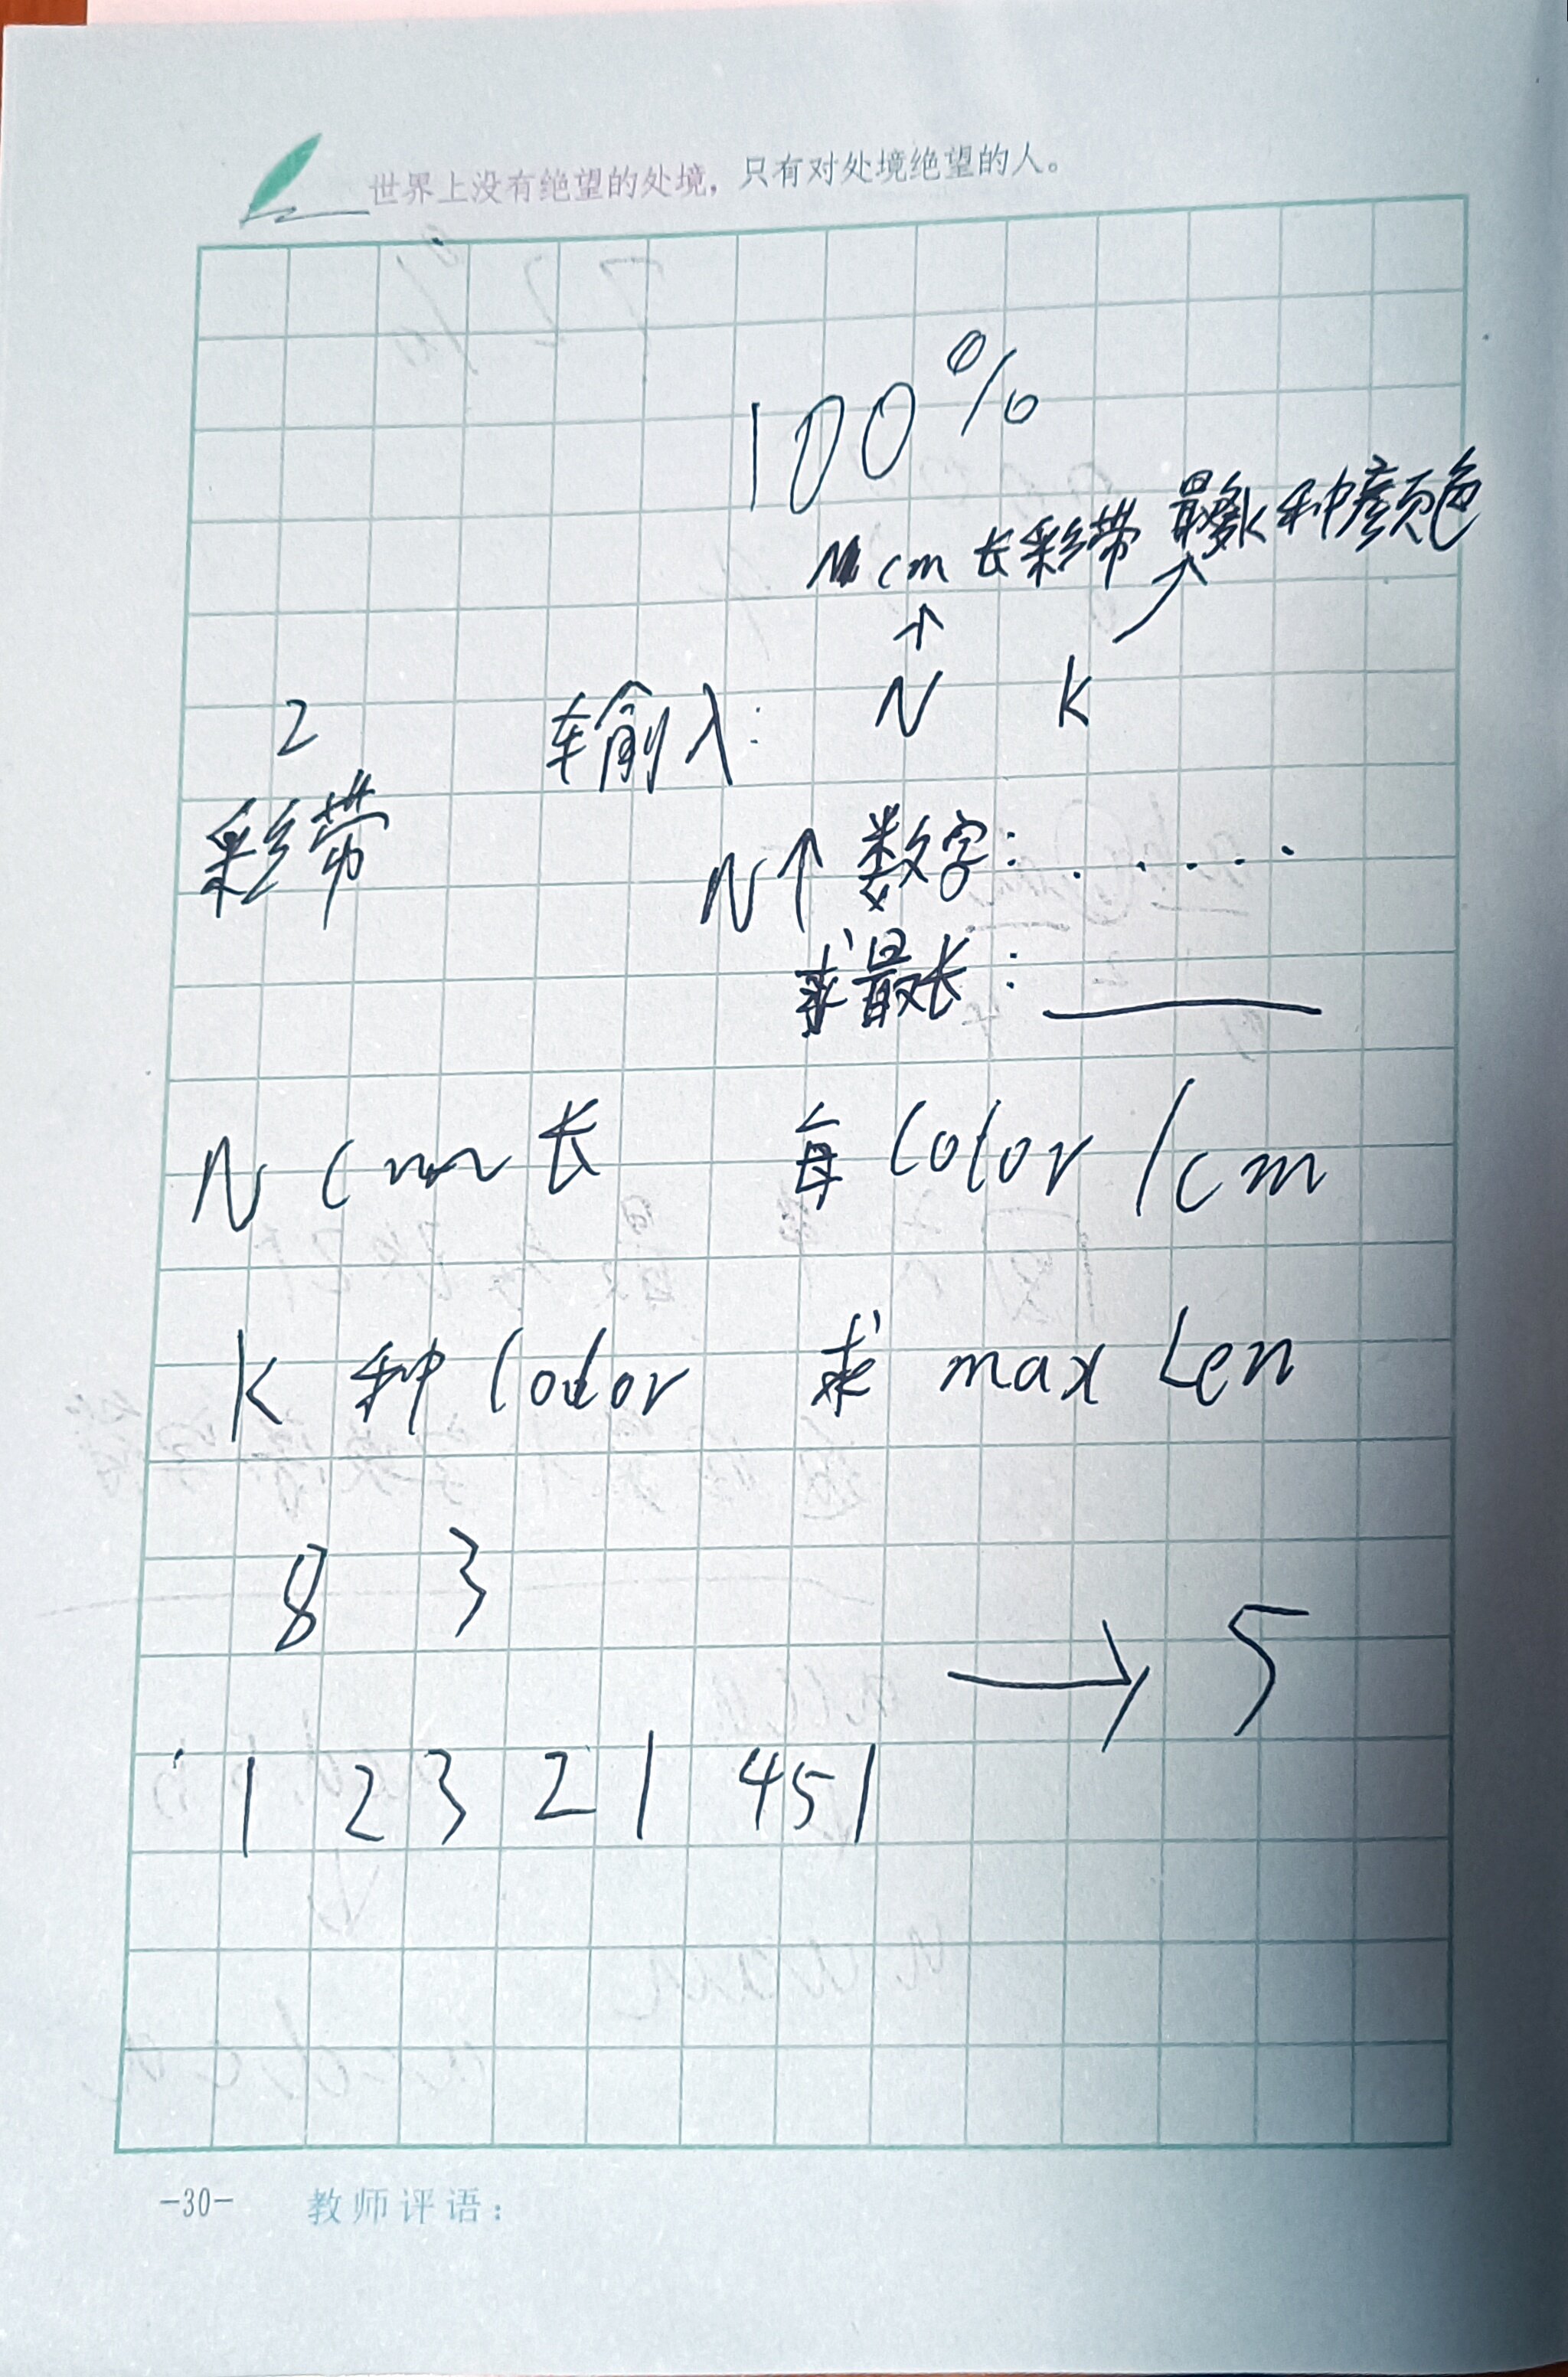 世界上没有绝望的处境，只有对处境绝望的人。
100%
N cm 长彩带 最多k种颜色
2 输入: N K
彩带 N个 数字: . . . . .
求最长:
N cm 长 每 color 1cm
K 种 color 求 max Len
8 3
→ 5
1 2 3 2 1 4 5 1
-30- 教师评语：